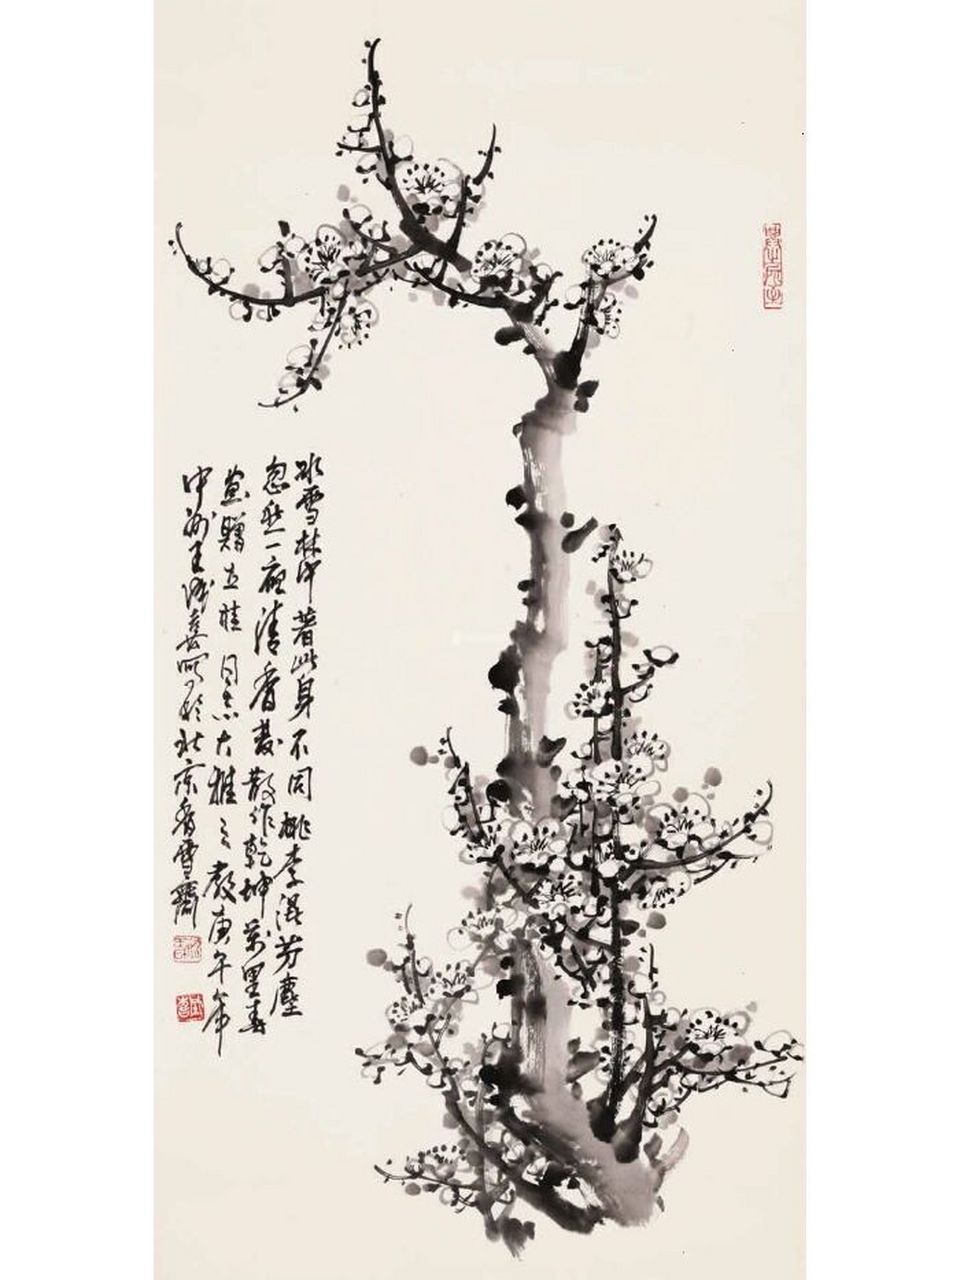 冰雪林中著此身不同桃李混芳塵
忽然一夜清香發散作乾坤萬里春
畫贈立桂同志大雅之教庚午年
中州王成喜寫於北京香雪齋